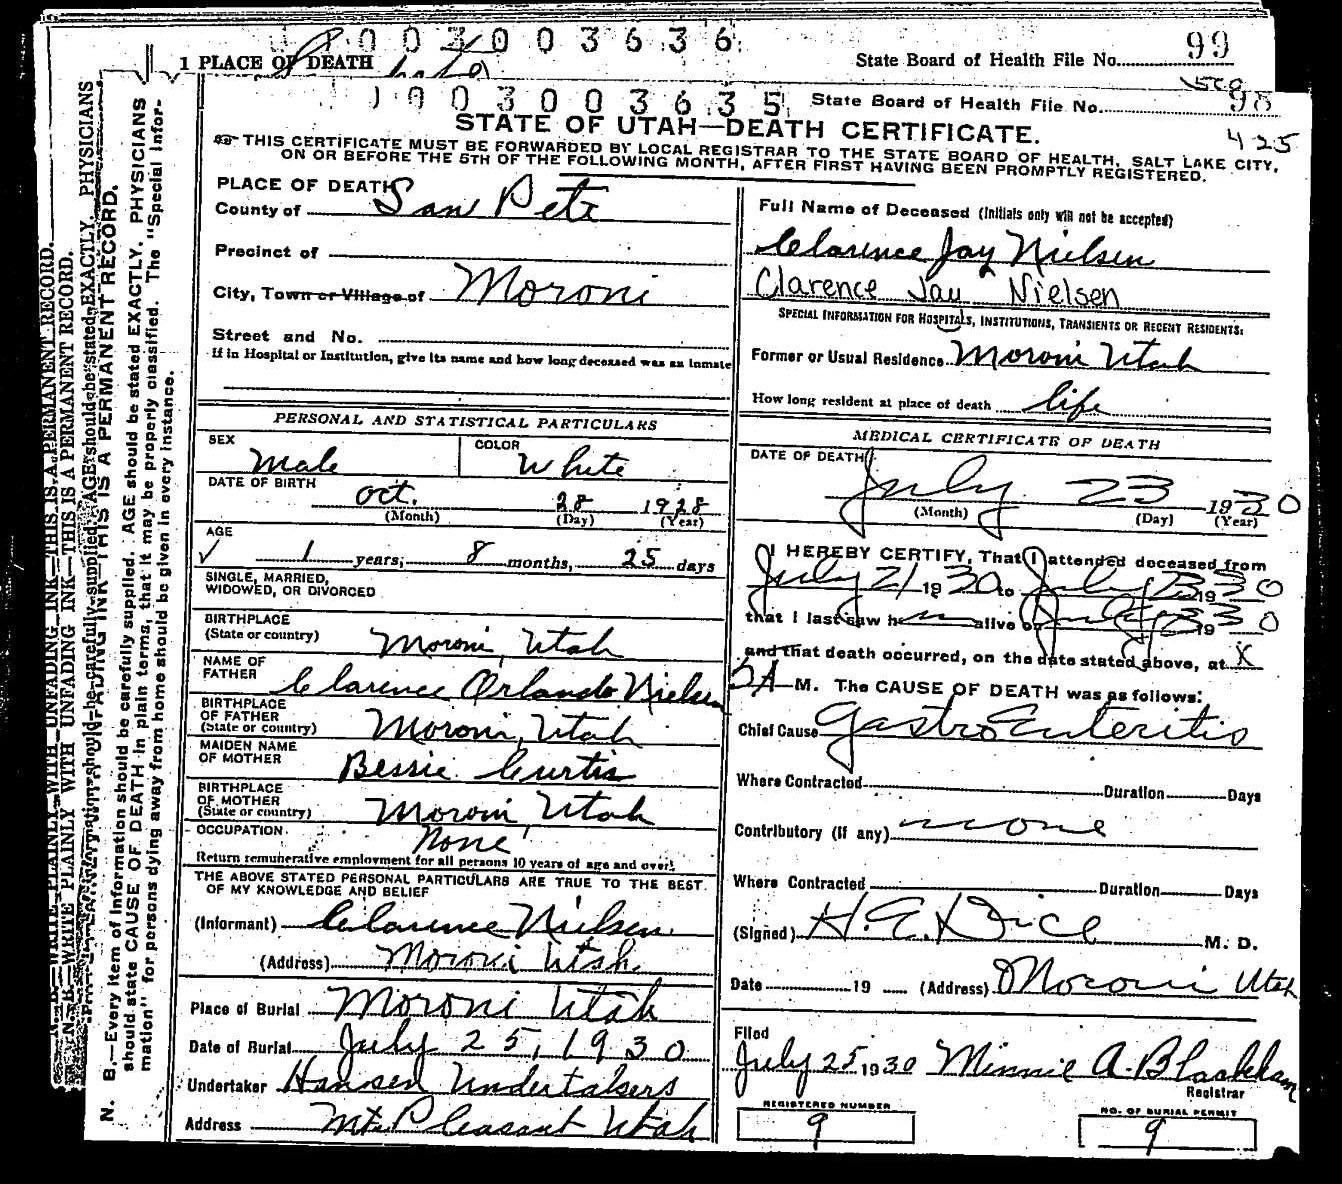 1003003636
1 PLACE OF DEATH
State Board of Health File No. 99
1003003635
State Board of Health File No. 98
425
STATE OF UTAH—DEATH CERTIFICATE.
THIS CERTIFICATE MUST BE FORWARDED BY LOCAL REGISTRAR TO THE STATE BOARD OF HEALTH, SALT LAKE CITY,
ON OR BEFORE THE 5TH OF THE FOLLOWING MONTH, AFTER FIRST HAVING BEEN PROMPTLY REGISTERED.
PLACE OF DEATH
County of San Pete
Precinct of
City, Town or Village of Moroni
Street and No.
If in Hospital or Institution, give its name and how long deceased was an inmate
PERSONAL AND STATISTICAL PARTICULARS
SEX Male
COLOR White
DATE OF BIRTH Oct. 28 1928
(Month) (Day) (Year)
AGE
✓ 1 years, 8 months, 25 days
SINGLE, MARRIED,
WIDOWED, OR DIVORCED
BIRTHPLACE
(State or country) Moroni, Utah
NAME OF
FATHER Clarence Orlando Nielsen
BIRTHPLACE
OF FATHER
(State or country) Moroni, Utah
MAIDEN NAME
OF MOTHER Bessie Curtis
BIRTHPLACE
OF MOTHER
(State or country) Moroni, Utah
OCCUPATION None
Return remunerative employment for all persons 10 years of age and over
THE ABOVE STATED PERSONAL PARTICULARS ARE TRUE TO THE BEST
OF MY KNOWLEDGE AND BELIEF
(Informant) Clarence Nielsen
(Address) Moroni Utah
Place of Burial Moroni Utah
Date of Burial July 25, 1930
Undertaker Hansen Undertakers
Address Mt. Pleasant Utah
Full Name of Deceased (Initials only will not be accepted)
Clarence Jay Nielsen
Clarence Jay Nielsen
SPECIAL INFORMATION FOR HOSPITALS, INSTITUTIONS, TRANSIENTS OR RECENT RESIDENTS:
Former or Usual Residence Moroni Utah
How long resident at place of death life
MEDICAL CERTIFICATE OF DEATH
DATE OF DEATH
July 23 1930
(Month) (Day) (Year)
I HEREBY CERTIFY, That I attended deceased from
July 21 1930 to July 23 1930
that I last saw him alive on July 23 1930
and that death occurred, on the date stated above, at X
5 A M. The CAUSE OF DEATH was as follows:
Chief Cause Gastro Enteritis
Where Contracted Duration Days
Contributory (if any) none
Where Contracted Duration Days
(Signed) H. E. Dice M. D.
Date 19 (Address) Moroni Utah
Filed
July 25 1930 Minnie A. Blackham
Registrar
REGISTERED NUMBER
9
NO. OF BURIAL PERMIT
9
N. B.—WRITE PLAINLY WITH UNFADING INK—THIS IS A PERMANENT RECORD.
N. B.—Every item of information should be carefully supplied. AGE should be stated EXACTLY. PHYSICIANS
should state CAUSE OF DEATH in plain terms, that it may be properly classified. The "Special Infor-
mation" for persons dying away from home should be given in every instance.